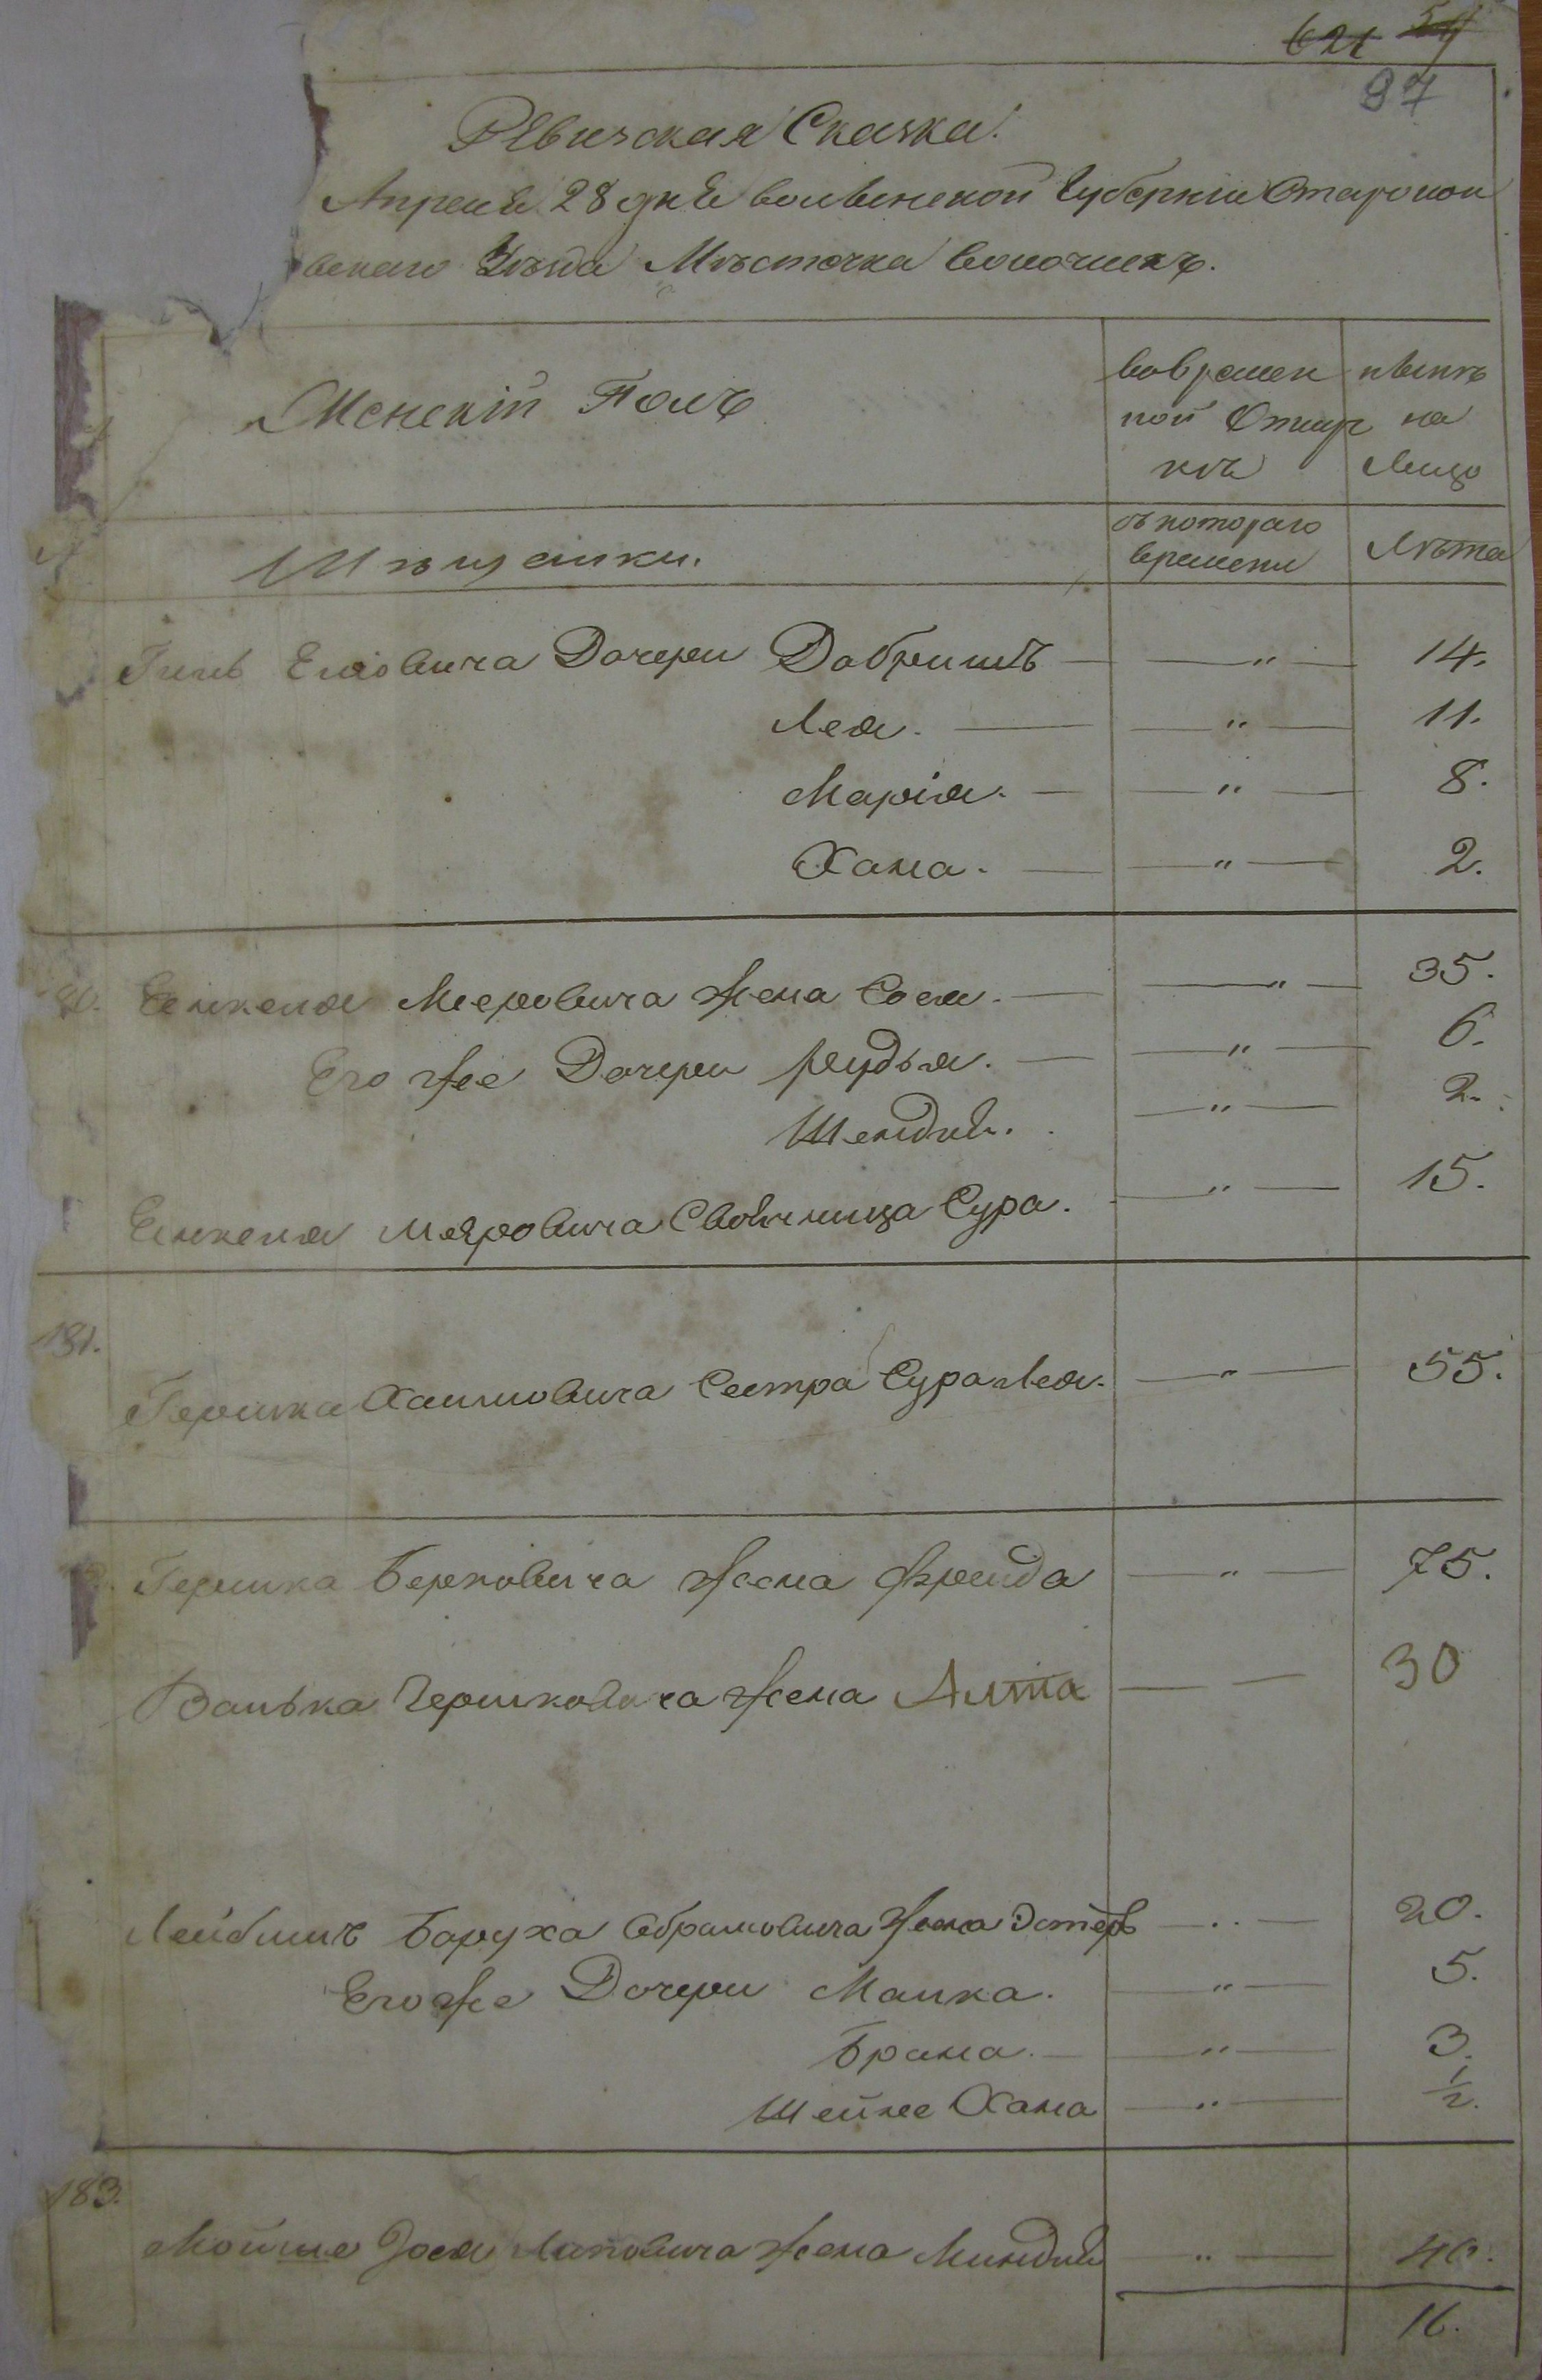 621 54
97
Ревизская Сказка.
Апреля 28 дня Волынской Губернии Староκон
вскаго Уѣзда Мѣстечка Волочискъ.
Женскій Полъ
во времен
ной Отлуч
кѣ
нынѣ
на
Лицо
Мѣщанки.
съ котораго
времени
Лѣта
Еліовича Дочери Добришъ — " — 14.
Лея. — " — 11.
Марія. — " — 8.
Хана. — " — 2.
Мееровича Жена Сося. — " — 35.
Его же Дочери Рудья. — " — 6.
Шендля. — " — 2.
Мяровича Своячница Сура. — " — 15.
181.
Гершка Хаимовича Сестра Сура Лея. — " — 55.
Гершка Берковича Жена Фрейда — " — 75.
Ванька Гершковича Жена Алта — — 30
Лейбишъ Баруха Абрамовича Жена Эстеръ — " — 20.
Его же Дочери Малка. — " — 5.
Брана. — " — 3.
Шейне Хана — " — 1/2.
183.
Мойше Жена Миндля " — 40.
16.